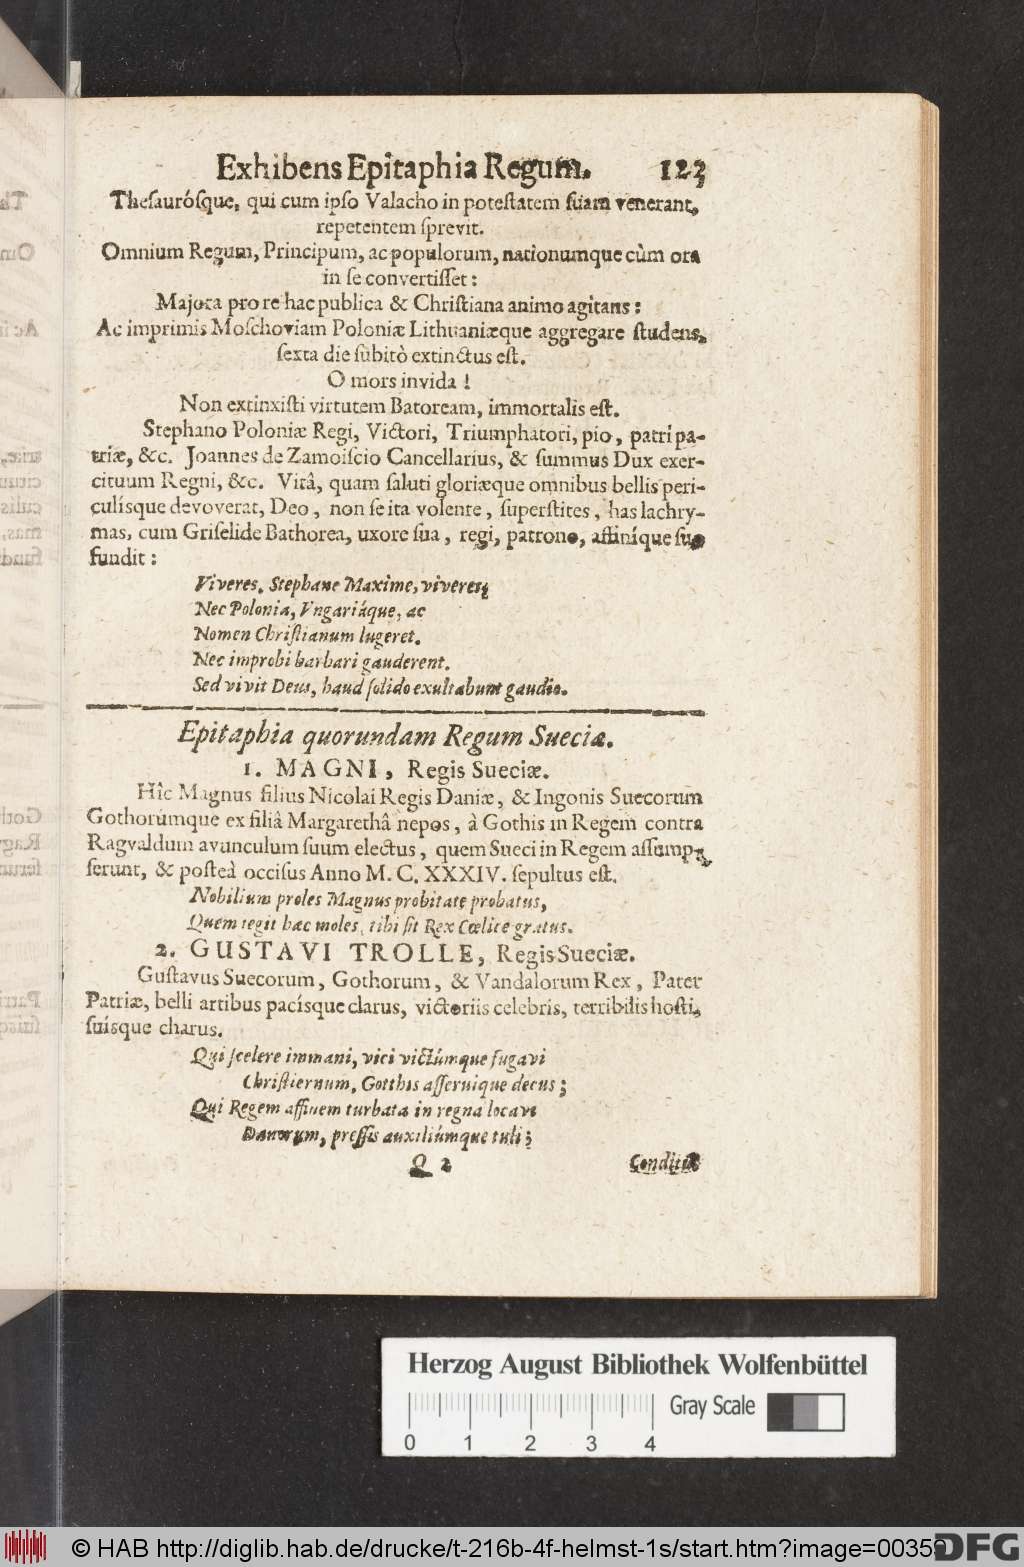 Exhibens Epitaphia Regum. 123
Thesaurósque, qui cum ipso Valacho in potestatem suam venerant,
repetentem sprevit.
Omnium Regum, Principum, ac populorum, nationumque cùm ora
in se convertisset:
Majora pro re hac publica & Christiana animo agitans:
Ac imprimis Moschoviam Poloniæ Lithuaniæque aggregare studens,
sexta die subitò extinctus est.
O mors invida!
Non extinxisti virtutem Batoream, immortalis est.
Stephano Poloniæ Regi, Victori, Triumphatori, pio, patri pa-
triæ, &c. Joannes de Zamoiscio Cancellarius, & summus Dux exer-
cituum Regni, &c. Vitâ, quam saluti gloriæque omnibus bellis peri-
culísque devoverat, Deo, non se ita volente, superstites, has lachry-
mas, cum Griselide Bathorea, uxore sua, regi, patrono, affiníque suo
fundit:
Viveres, Stephane Maxime, viveres;
Nec Polonia, Vngariáque, ac
Nomen Christianum lugeret.
Nec improbi barbari gauderent.
Sed vivit Deus, haud solido exultabunt gaudio.
Epitaphia quorundam Regum Sueciæ.
1. MAGNI, Regis Sueciæ.
Hîc Magnus filius Nicolai Regis Daniæ, & Ingonis Suecorum
Gothorúmque ex filiâ Margarethâ nepos, à Gothis in Regem contra
Ragvaldum avunculum suum electus, quem Sueci in Regem assump-
serunt, & posteà occisus Anno M. C. XXXIV. sepultus est.
Nobilium proles Magnus probitate probatus,
Quem tegit hæc moles, tibi sit Rex Cœlice gratus.
2. GUSTAVI TROLLE, Regis Sueciæ.
Gustavus Suecorum, Gothorum, & Vandalorum Rex, Pater
Patriæ, belli artibus pacísque clarus, victoriis celebris, terribilis hosti,
suisque charus.
Qui scelere immani, vici victúmque fugavi
Christiernum, Gotthis asseruique decus;
Qui Regem affinem turbata in regna locavi
Danorum, pressis auxiliúmque tuli;
Q 2 Conditus
Herzog August Bibliothek Wolfenbüttel
Gray Scale
0 1 2 3 4
© HAB http://diglib.hab.de/drucke/t-216b-4f-helmst-1s/start.htm?image=00359
DFG